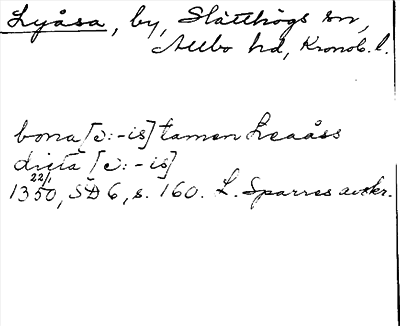 Lyåsa, by, Slätthögs sn,
Allbo hd, Kronob. l.
bona [ɔ: -is] tamen Leaåss
dicta [ɔ: -is]
22/1
1350, SD 6, s. 160. L. Sparres avskr.